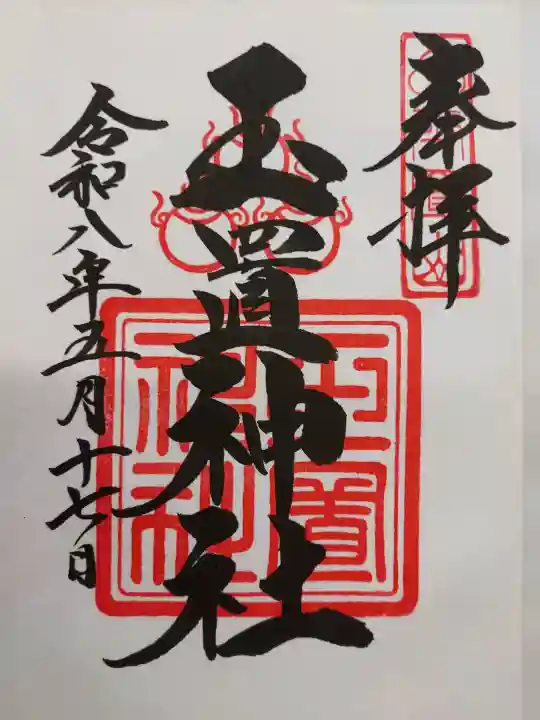 奉拝
玉置神社
令和八年五月十七日
玉置
神社